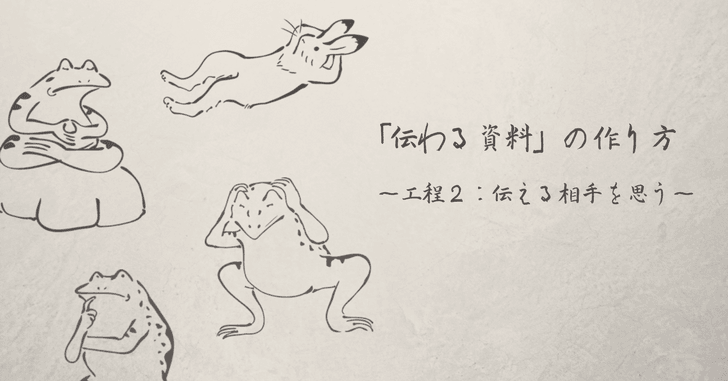 「伝わる資料」の作り方
〜工程２：伝える相手を思う〜